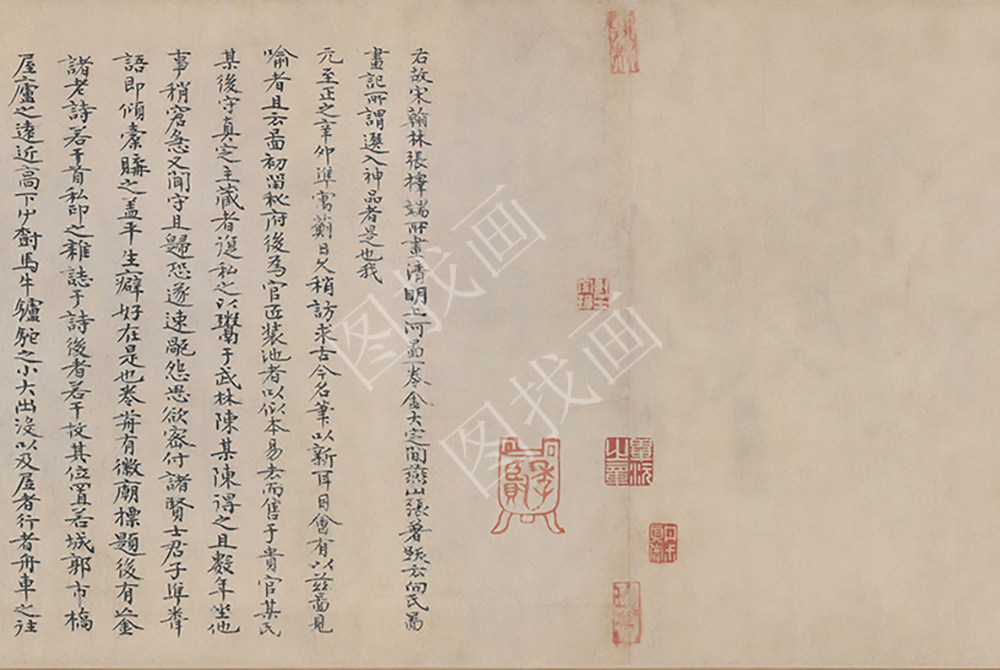 右故宋翰林張擇端所畫清明上河圖一卷金大定間燕山張著跋云向氏圖
畫記所謂選入神品者是也我
元至正之辛卯準寓薊日久稍訪求古今名筆以新耳目會有以茲圖見
喻者且云圖初留秘府後為官匠裝池者以似本易去而售于貴官某氏
某後守真定主藏者復私之以鬻于武林陳某陳得之且數年坐他
事稍窘急又聞守且歸恐遂速駈怨思欲密付諸賢士君子準聞
語即傾橐購之盖平生癖好在是也卷前有徽廟標題後有亡金
諸老詩若干首私印之雜誌于詩後者若干枚其位置若城郭市橋
屋廬之遠近高下艸樹馬牛驢駝之小大出沒以及居者行者舟車之往
图找画
图找画